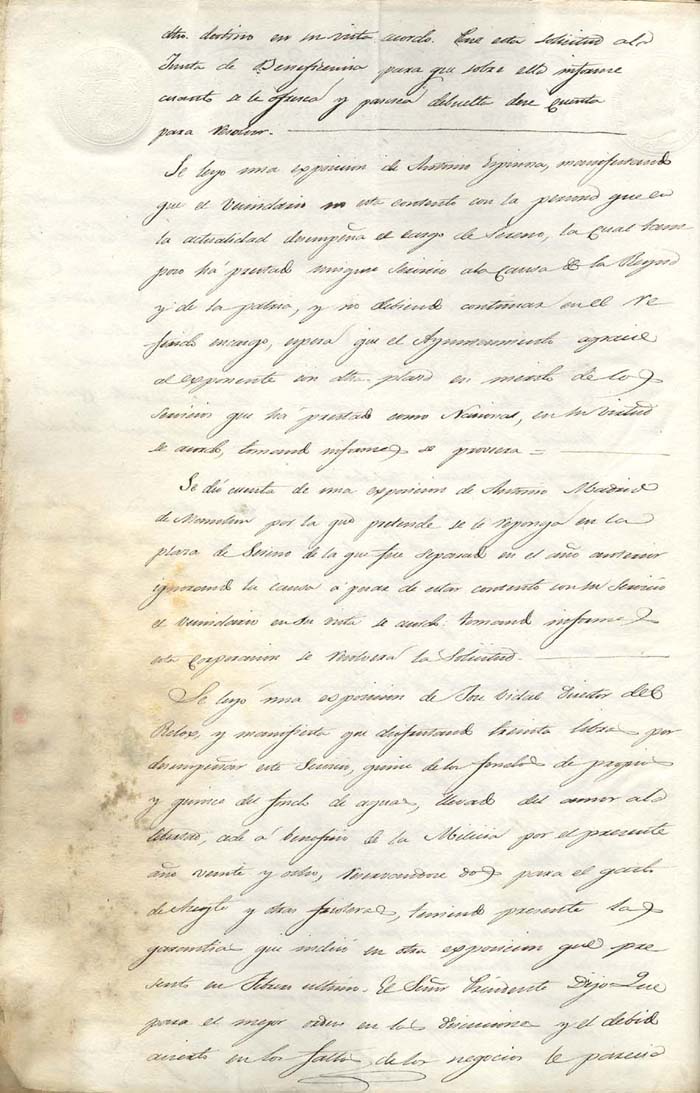 dho. destino en su vista acordo. Pase esta solicitud ala
Junta de Beneficencia para que sobre ella informe
cuanto se le ofresca y paresca debuelta dese cuenta
para resolver.
Se leyo una exposicion de Antonio Espinosa, manifestando
que el Vecindario no esta contento con la persona que en
la actualidad desempeña el cargo de Sereno, la cual tam
poco há prestado ningun Servicio ala Causa de la Reyna
y de la patria, y no debiendo continuar en el re
ferido encargo, espera que el Ayuntamiento agracie
al exponente con dha. plaza en merito de los
Servicios que há prestado como Nacional, en su virtud
se acordo, tomando informes se proveera =
Se dió cuenta de una exposicion de Antonio Madrid
de por la que pretende se le reponga en la
plaza de Sereno de la que fue separado en el año anterior
ignorando la causa á pesar de estar contento con su Servicio
el Vecindario en su vista se acordó: tomando informes
esta Corporacion se resolverá la Solicitud.
Se leyó una exposicion de Jose Vidal Director del
Relox, y manifiesta que disfrutando treinta libras por
desempeñar este Servicio, quince de los fondos de propios
y quince del fondo de aguas, llevado del amor ala
libertad, cede á beneficio de la Milicia por el presente
año veinte y ocho, reservandose dos para el gasto
de Aceyte y otras frioleras, teniendo presente las
garantias que indicó en otra exposicion que pre
sentó en ultimo. El Señor Presidente Dijo: Que
para el mejor orden en las discuciones y el debido
acierto en los fallos de los negocios le parecia